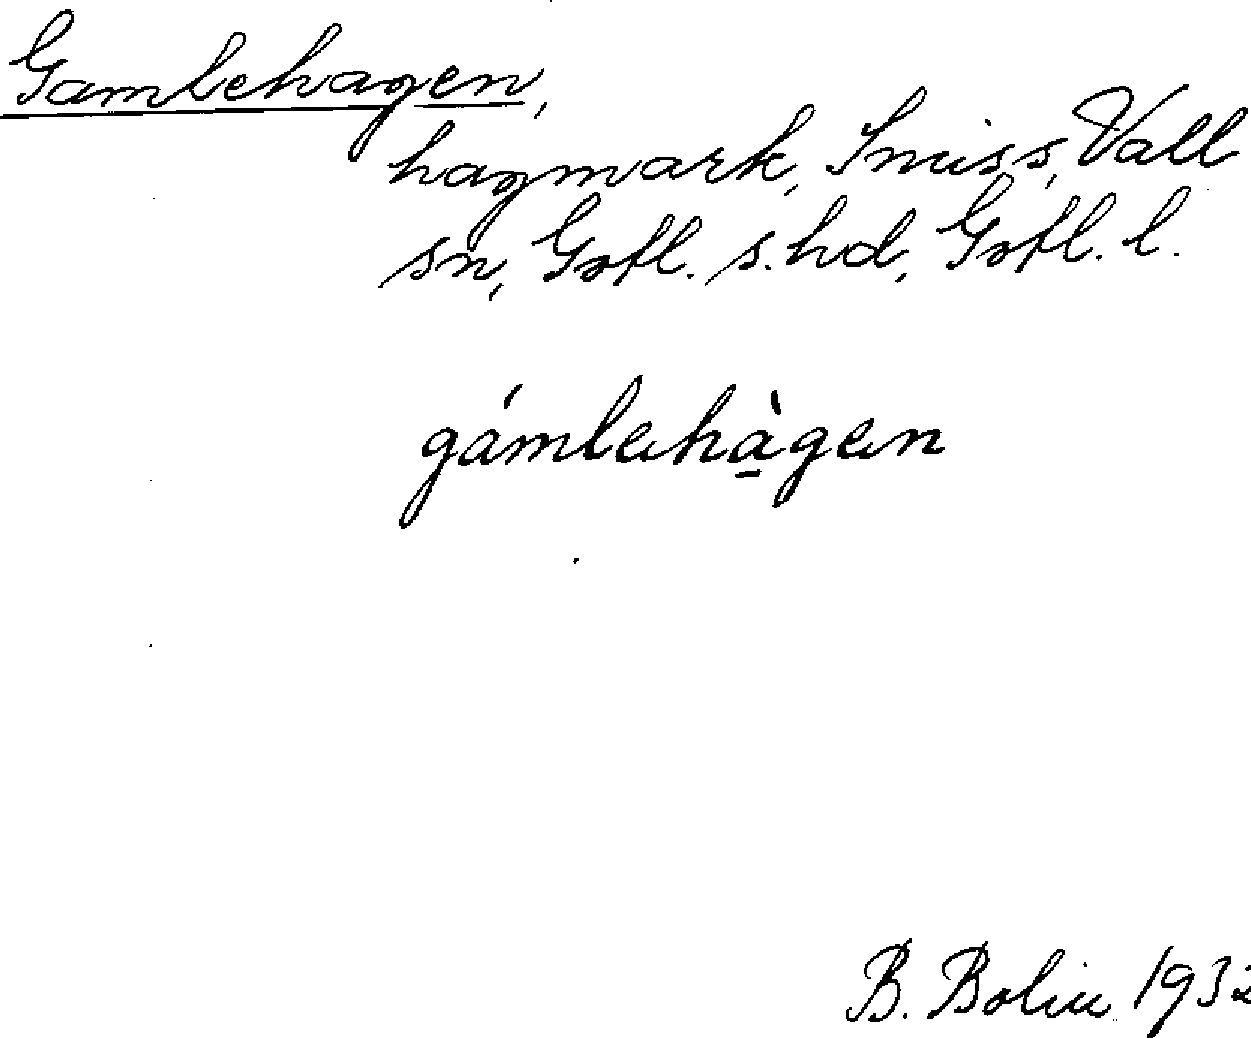 Gamlehagen,
hagmark, Smiss, Vall
sn, Gotl. s. hd, Gotl. l.
gámlehà̱gen
B. Bolin 1932